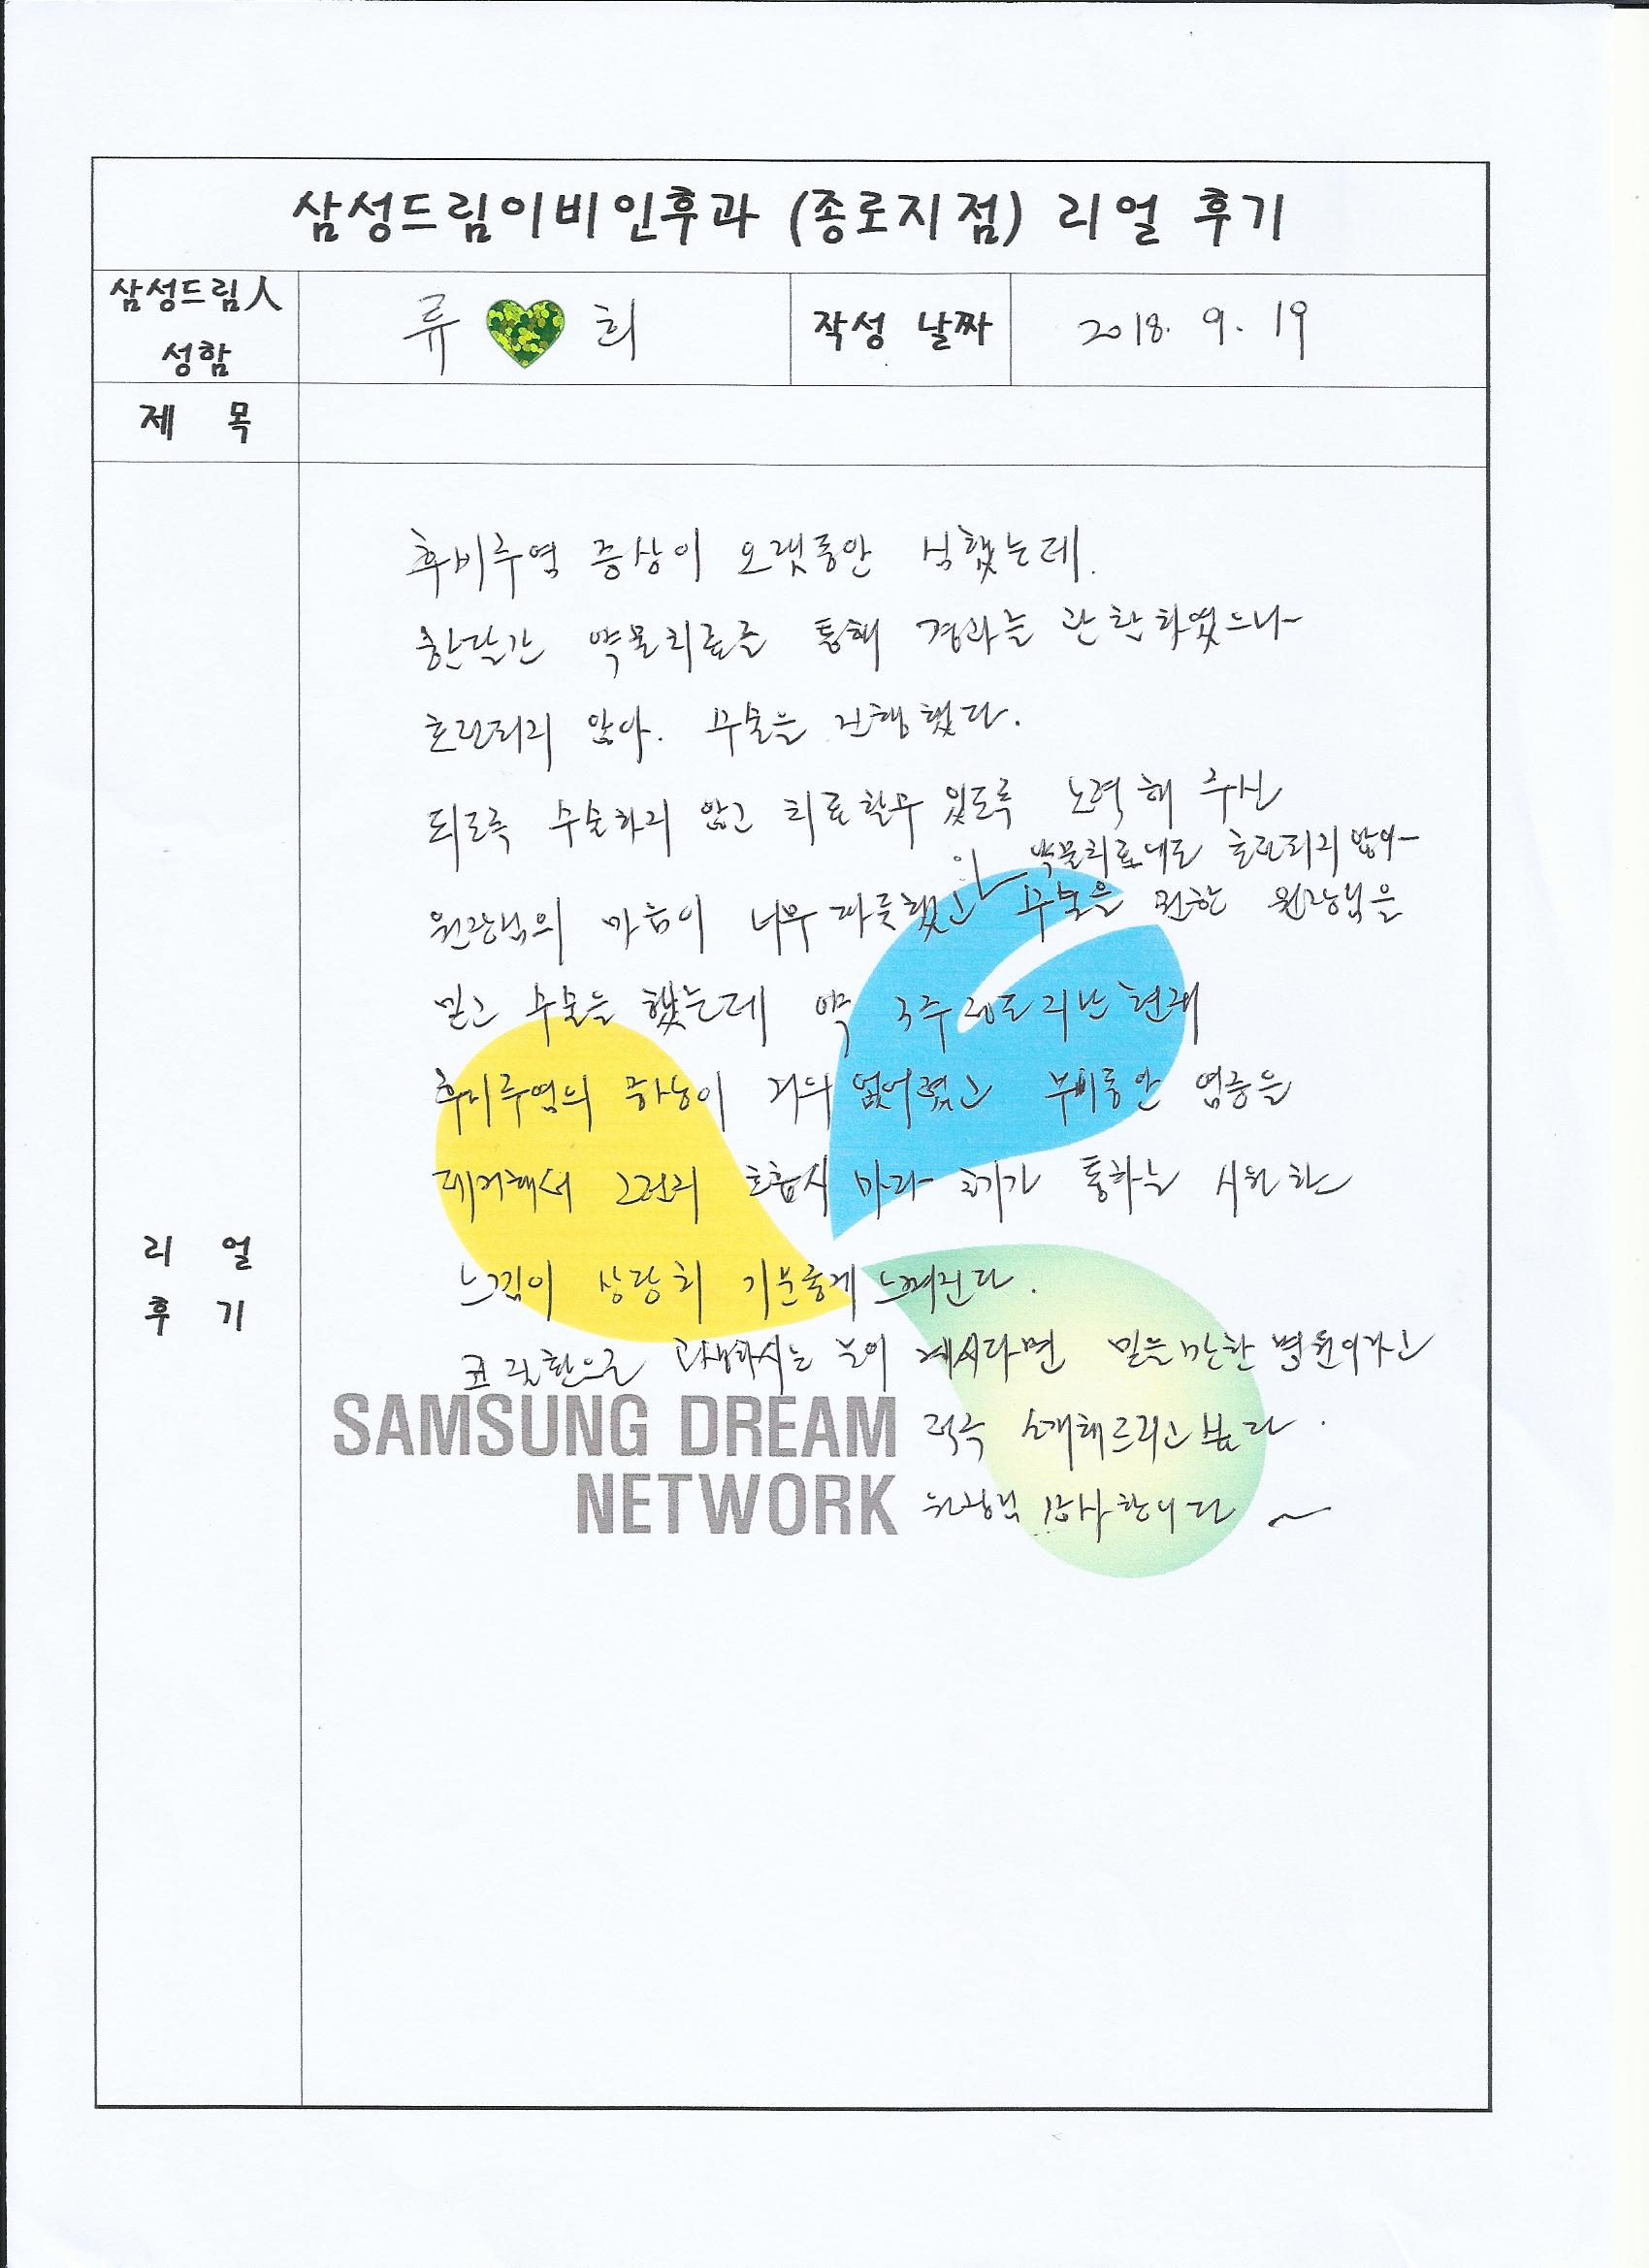 삼성드림이비인후과 (종로지점) 리얼 후기
삼성드림人
성함
류 희
작성 날짜
2018. 9. 19
제 목
리 얼
후 기
후비루염 증상이 오랫동안 심했는데.
한달간 약물치료를 통해 경과를 관찰하였으나
호전되지 않아. 수술을 진행했다.
되도록 수술하지 않고 치료할수 있도록 노력해 주신
약물치료에도 호전되지 않아
원장님의 마음이 너무 따뜻했고 수술을 권한 원장님을
믿고 수술을 했는데 약 3주 정도 지난 현재
후비루염의 증상이 거의 없어졌고 부비동안 염증을
제거해서 그런지 호흡시 마다 공기가 통하는 시원한
느낌이 상당히 기분좋게 느껴진다.
코 질환으로 고생하시는 분이 계시다면 믿을만한 병원이라고
적극 소개해드리고 싶다.
원장님 감사합니다 ~
SAMSUNG DREAM
NETWORK